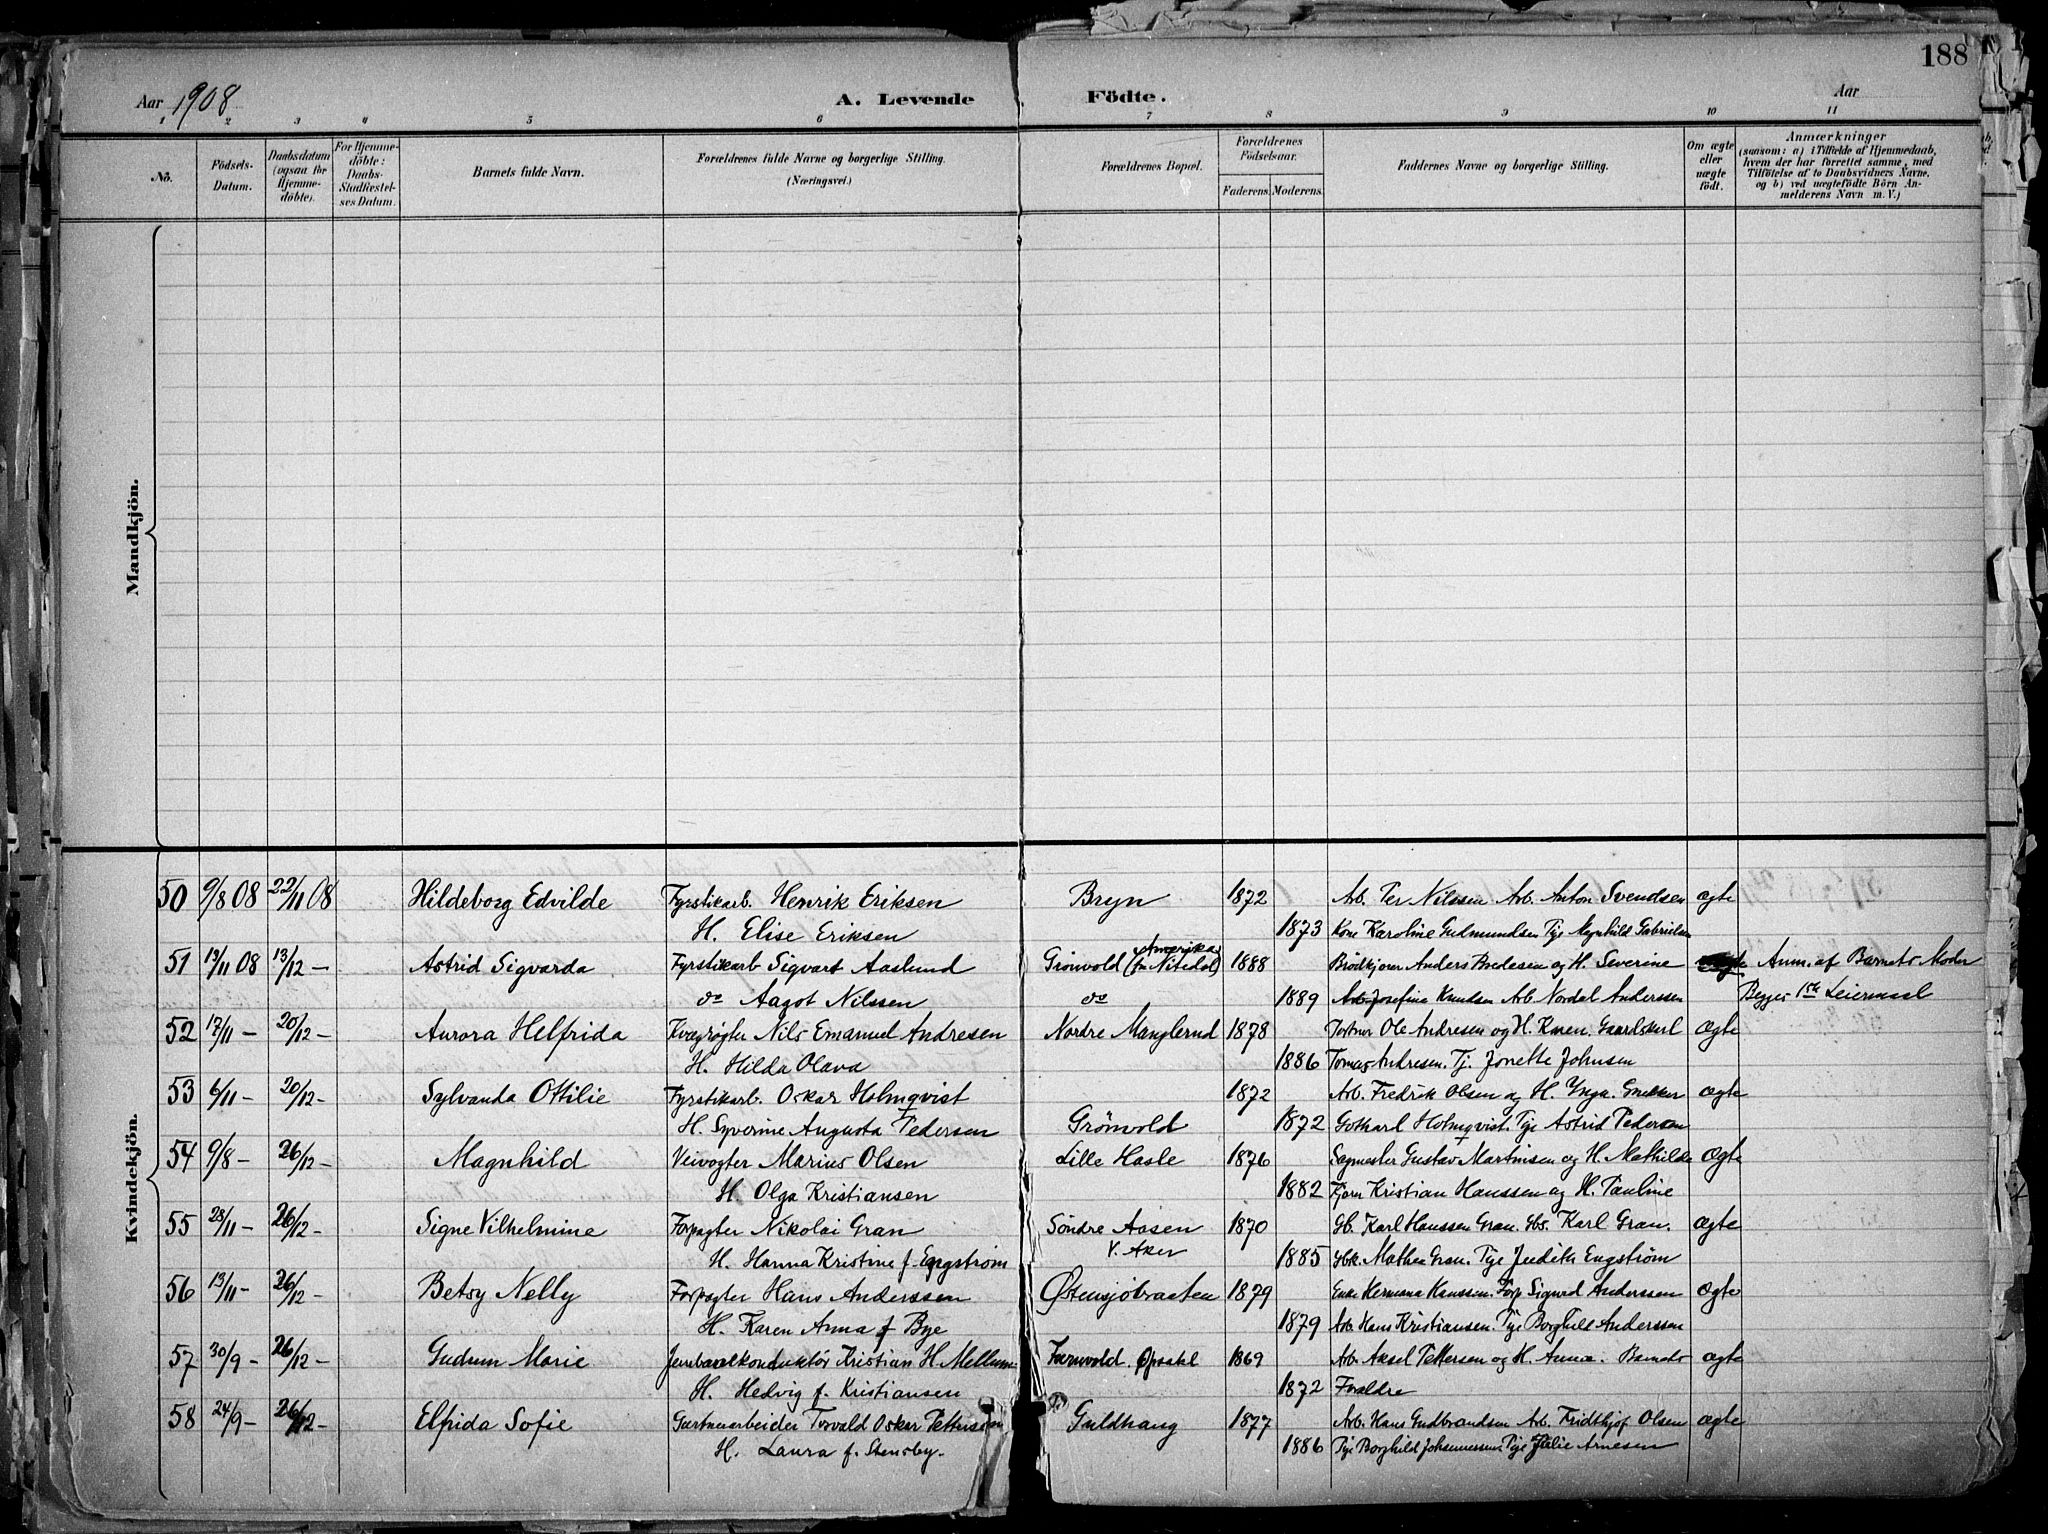 188
Aar 1908 A. Levende Födte. Aar
1 2 3 4 5 6 7 8 9 10 11
No. Födsels-Datum. Daabsdatum (ogsaa for Hjemme-döbte). For Hjemme-döbte: Daabs-Stadfæstel-ses Datum. Barnets fulde Navn. Forældrenes fulde Navne og borgerlige Stilling. (Næringsvei.) Forældrenes Bopæl. Forældrenes Födselsaar. Faderens. Moderens. Faddernes Navne og borgerlige Stilling. Om ægte eller uægte födt. Anmærkninger (saasom: a) i Tilfælde af Hjemmedaab, hvem der har forrettet samme, med Tilföielse af to Daabsvidners Navne, og b) ved uægtefödte Börn An-melderens Navn m. V.)
Mandkjön.
Kvindekjön.
50 9/8 08 22/11 08 Hildeborg Edvilde Fyrstikarb. Henrik Eriksen Bryn 1872 Arb. Per Nilssen. Arb. Anton Svendsen ægte
H. Elise Eriksen 1873 Kone Karoline Gudmundsen Tje Magnhild Gabrielsen
Amerika
51 13/11 08 13/12 – Astrid Sigvarda Fyrstikarb Sigvart Aaslund Grönvold (fra Nitedal) 1888 Brödkjører Anders Bredesen og H. Severine Anm. af Barnets Moder
do Aagot Nilssen do 1889 Arb. Josefine Knudsen Arb. Nordal Anderssen Begges 1ste Leiermaal
52 17/11 – 20/12 – Aurora Helfrida Kvægrøgter Nils Emanuel Andresen Nordre Manglerud 1878 Ole Andresen og H. Karen. Gaardskarl ægte
H. Hilda Olava 1886 Tomas Andresen. Tj. Jonette Johnsen
53 6/11 – 20/12 – Sylvanda Ottilie Fyrstikarb. Oskar Holmqvist 1872 Arb. Fredrik Olsen og H. Inga. Snekker ægte
H. Syverine Augusta Pedersen Grönvold 1872 Gothard Holmqvist. Tje Astrid Pedersen
54 9/8 – 26/12 – Magnhild Veivogter Marius Olsen Lille Hasle 1876 Sagmester Gustav Martinsen og H. Mathilde Ægte
H. Olga Kristiansen 1882 Kristian Hanssen og H. Pauline
55 28/11 – 26/12 – Signe Vilhelmine Forpagter Nikolai Gran Söndre Aasen 1870 Gb. Karl Hanssen Gran. Gbs. Karl Gran. ægte
H. Hanna Kristine f. Engstrøm V. Aker 1885 Gbk. Mathea Gran. Tje Judith Engstrøm
56 13/11 – 26/12 – Betsy Nelly Forpagter Hans Anderssen Østensjöbraaten 1879 Enke Hermana Hanssen. Forp Sigurd Anderssen Ægte
H. Karen Anna f Bye 1879 Arb. Hans Kristiansen. Tje Borghild Anderssen
57 30/9 – 26/12 – Gudrun Marie Jernbanekonduktør Kristian H. Mellum Furuvold. Opsahl 1869 Arb. Aksel Pettersen og H. Anna. Barnets ægte
H. Hedvig f. Kristiansen 1872 Forældre
58 24/9 – 26/12 – Elfrida Sofie Gartnerarbeider Torvald Oskar Petterssen Guldhaug 1877 Arb. Hans Gudbrandsen Arb. Fridthjof Olsen ægte
H. Laura f. Stensby. 1886 Tje Borghild Johannessen. Tje Julie Arnesen